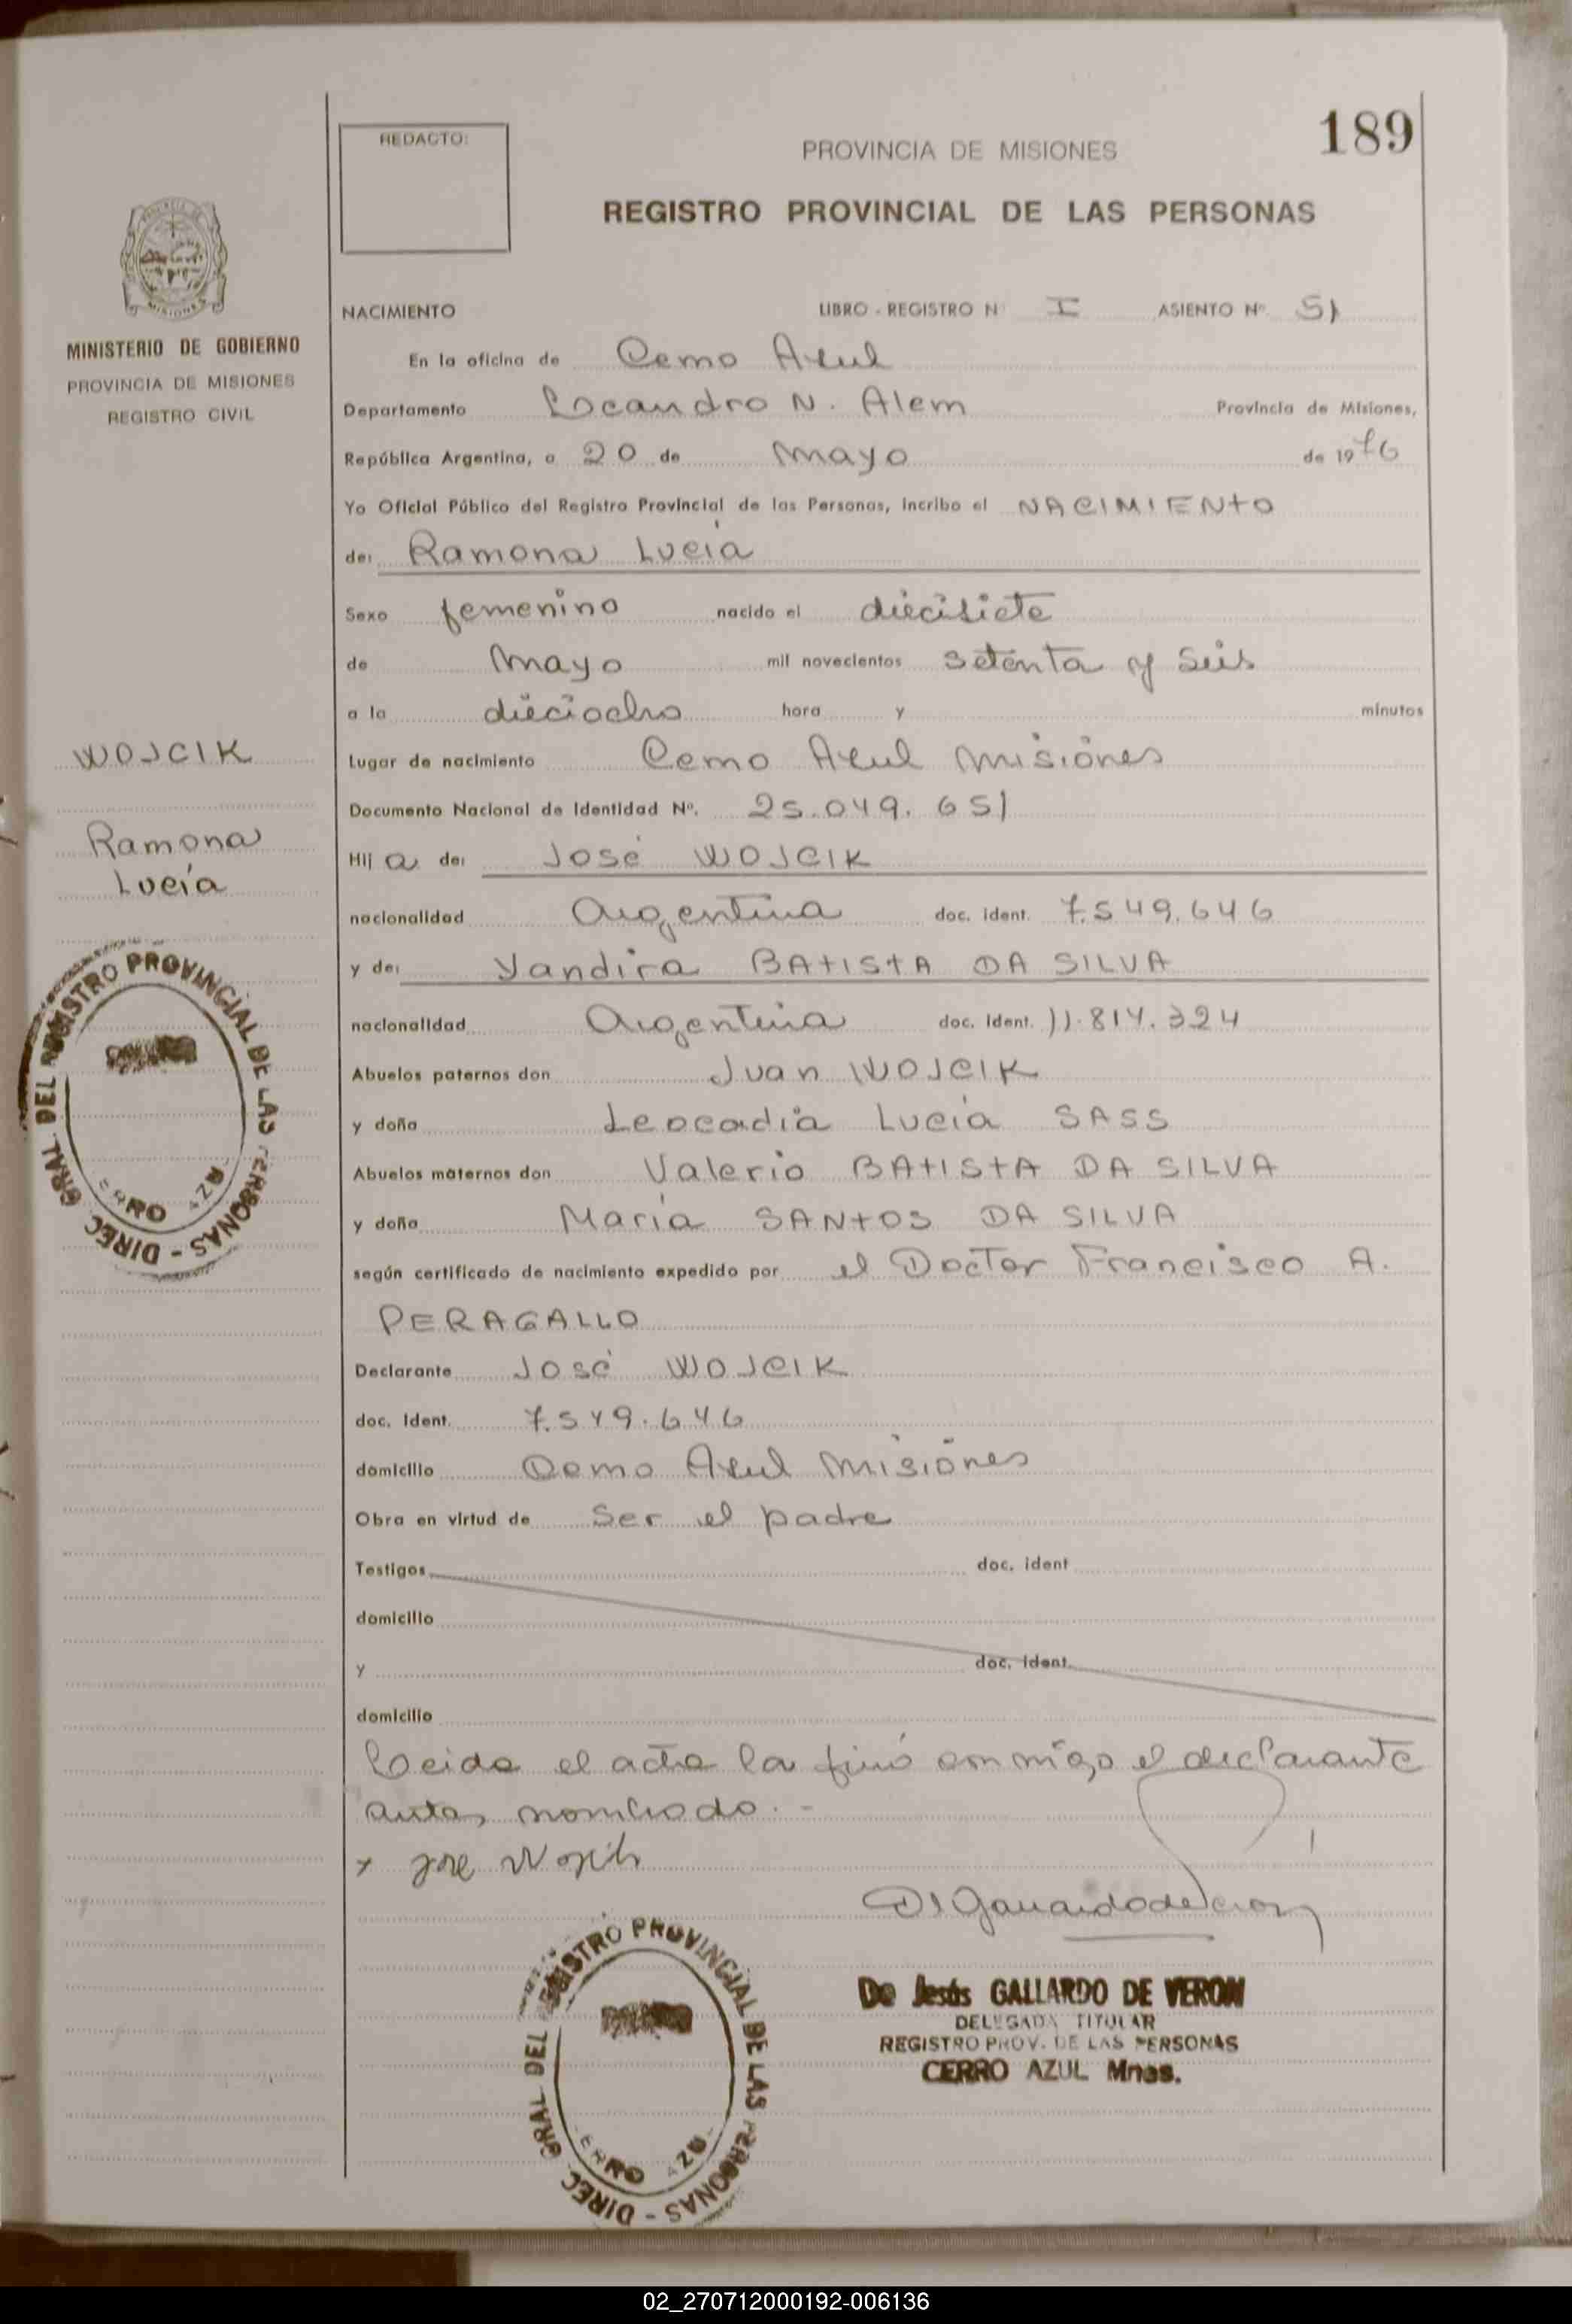 189
REDACTO:
PROVINCIA DE MISIONES
REGISTRO PROVINCIAL DE LAS PERSONAS
MISIONES
MINISTERIO DE GOBIERNO
PROVINCIA DE MISIONES
REGISTRO CIVIL
NACIMIENTO LIBRO - REGISTRO N° I ASIENTO N° 51
En la oficina de Cerro Azul
Departamento Leandro N. Alem Provincia de Misiones,
República Argentina, a 20 de Mayo de 1976
Yo Oficial Público del Registro Provincial de las Personas, incribo el NACIMIENTO
de: Ramona Lucía
Sexo femenino nacido el diecisiete
de Mayo mil novecientos setenta y seis
a la dieciocho hora y minutos
Lugar de nacimiento Cerro Azul Misiones
Documento Nacional de Identidad N°. 25.049.651
Hij a de: José WOJCIK
nacionalidad Argentina doc. ident. 7.549.646
y de: Yandira BATISTA DA SILVA
nacionalidad Argentina doc. ident. 11.814.324
Abuelos paternos don Juan WOJCIK
y doña Leocadia Lucía SASS
Abuelos maternos don Valerio BATISTA DA SILVA
y doña María SANTOS DA SILVA
según certificado de nacimiento expedido por el Doctor Francisco A.
PERAGALLO
Declarante José WOJCIK
doc. ident. 7.549.646
domicilio Cerro Azul Misiones
Obra en virtud de ser el padre
Testigos doc. ident
domicilio
y doc. ident.
domicilio
Leida el acta la firmó conmigo el declarante
antes nombrado.-
x José Wojcik
WOJCIK
Ramona
Lucía
DIREC. GRAL. DEL REGISTRO PROVINCIAL DE LAS PERSONAS -
CERRO AZUL
DIREC. GRAL. DEL REGISTRO PROVINCIAL DE LAS PERSONAS -
CERRO AZUL
De Jesús GALLARDO DE VERON
DELEGADA TITULAR
REGISTRO PROV. DE LAS PERSONAS
CERRO AZUL Mnes.
02_270712000192-006136